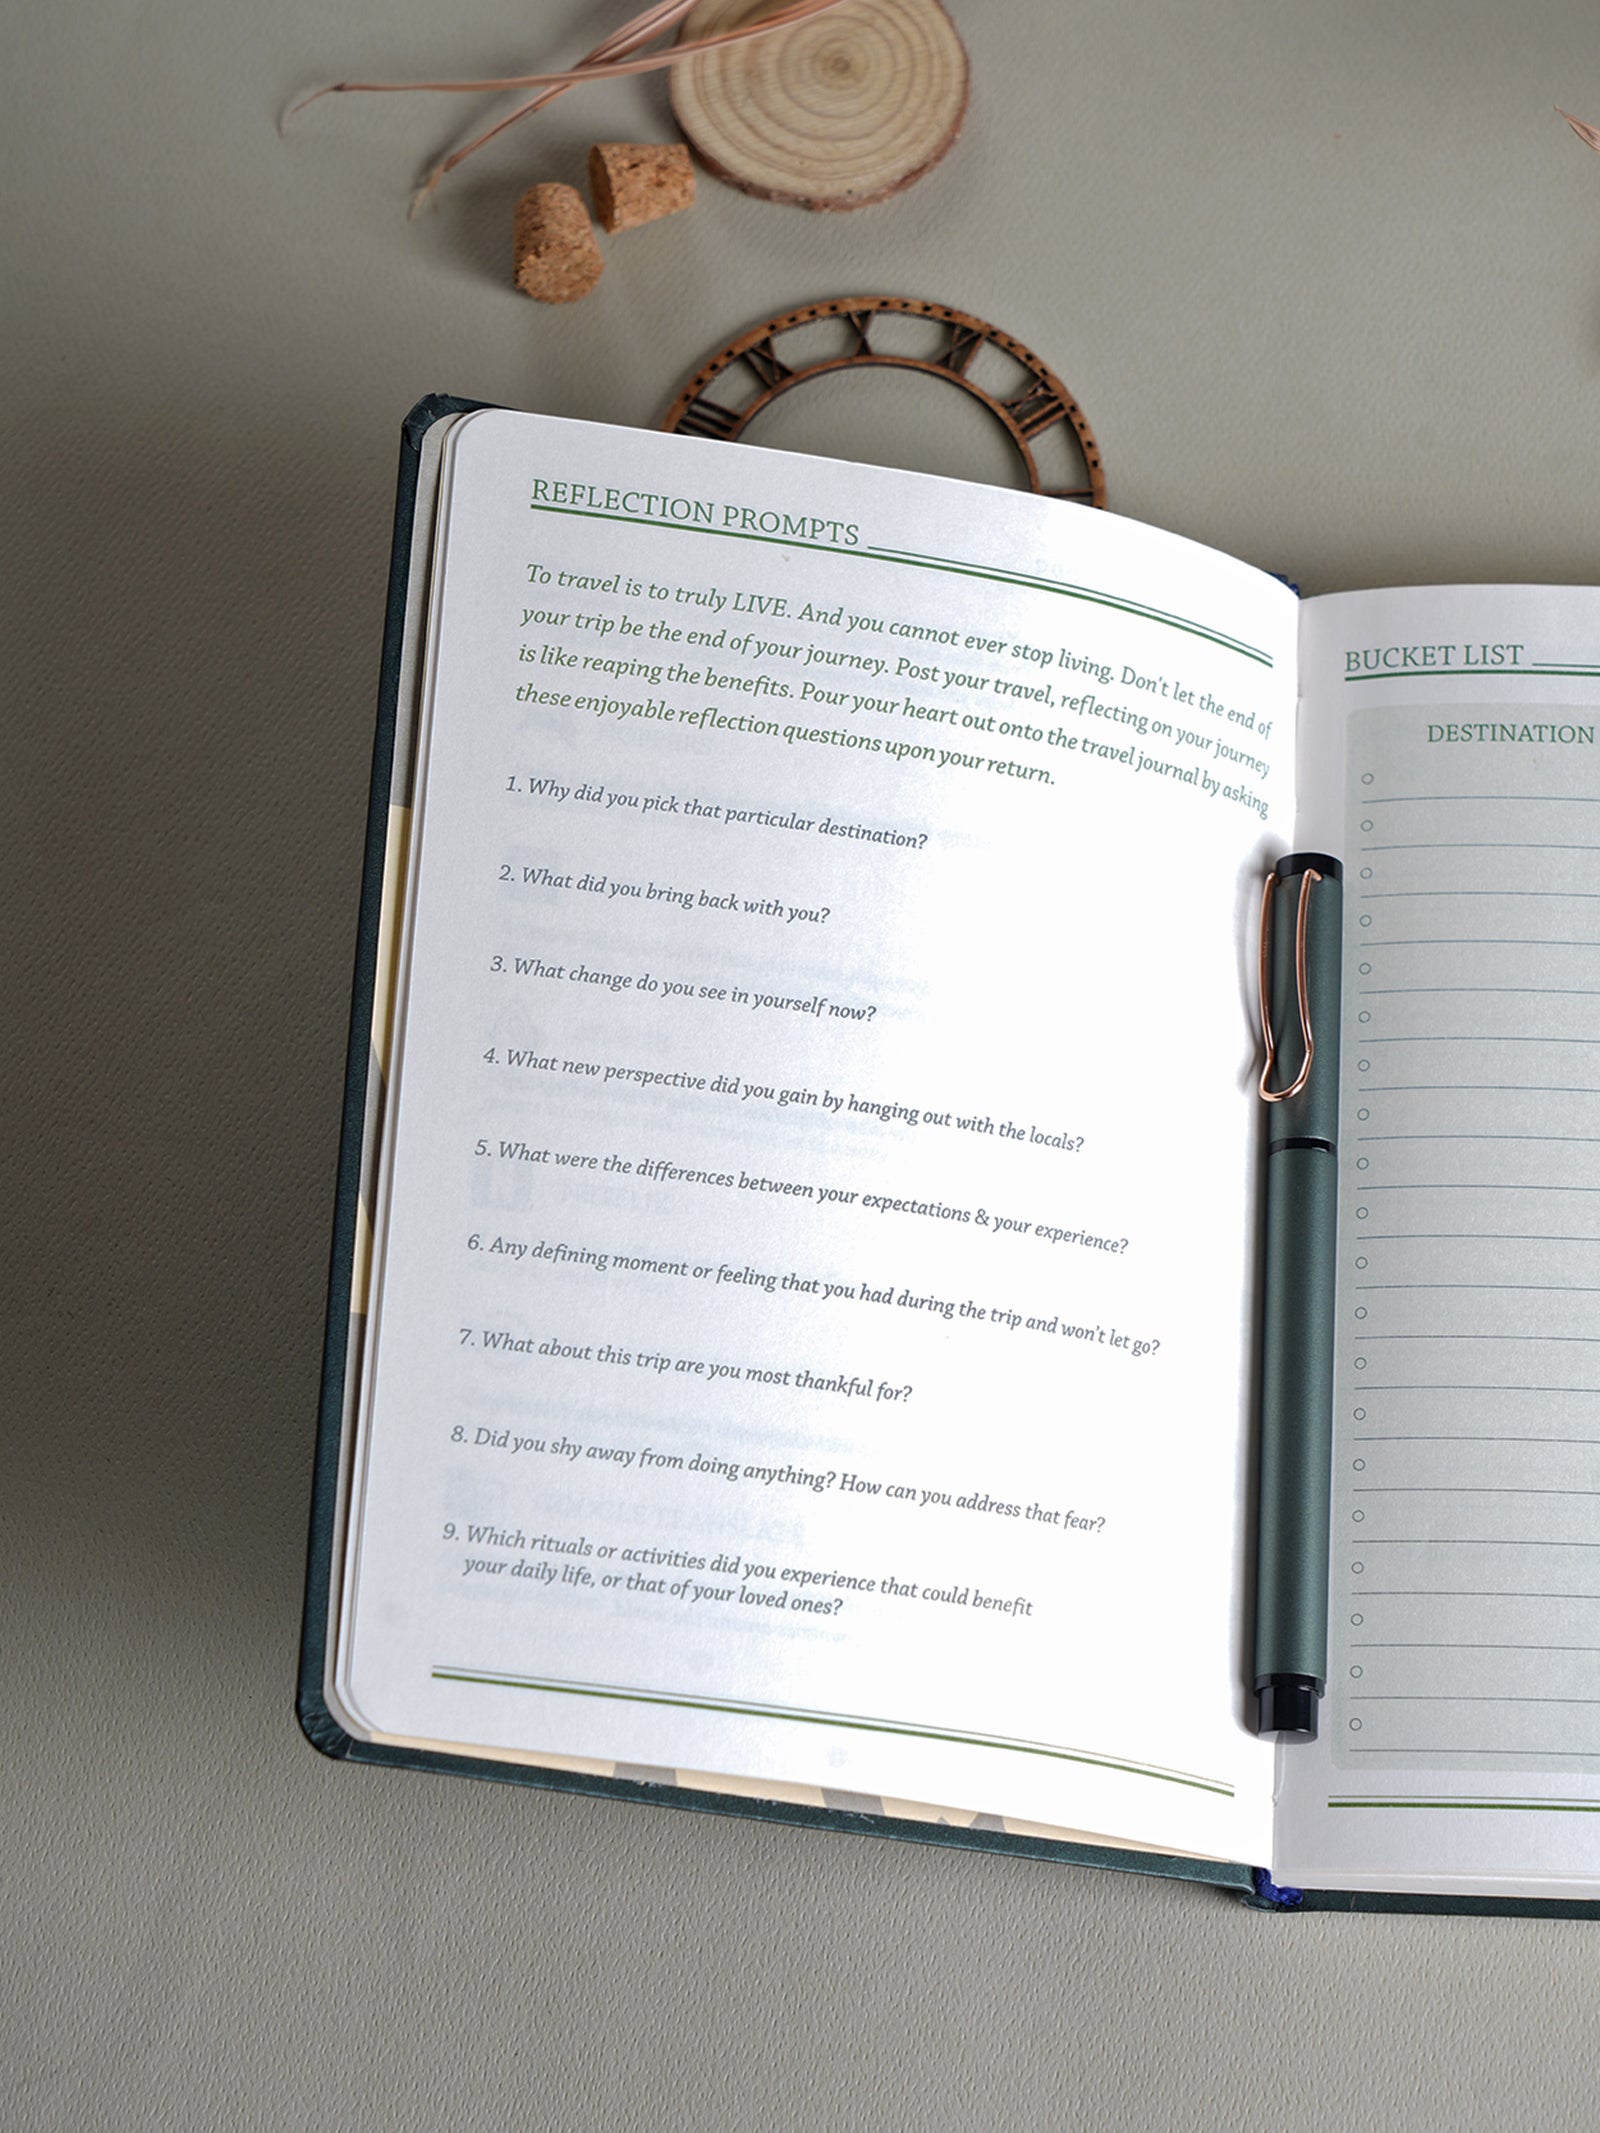 REFLECTION PROMPTS
To travel is to truly LIVE. And you cannot ever stop living. Don't let the end of
your trip be the end of your journey. Post your travel, reflecting on your journey
is like reaping the benefits. Pour your heart out onto the travel journal by asking
these enjoyable reflection questions upon your return.
1. Why did you pick that particular destination?
2. What did you bring back with you?
3. What change do you see in yourself now?
4. What new perspective did you gain by hanging out with the locals?
5. What were the differences between your expectations & your experience?
6. Any defining moment or feeling that you had during the trip and won't let go?
7. What about this trip are you most thankful for?
8. Did you shy away from doing anything? How can you address that fear?
9. Which rituals or activities did you experience that could benefit
your daily life, or that of your loved ones?
BUCKET LIST
DESTINATION